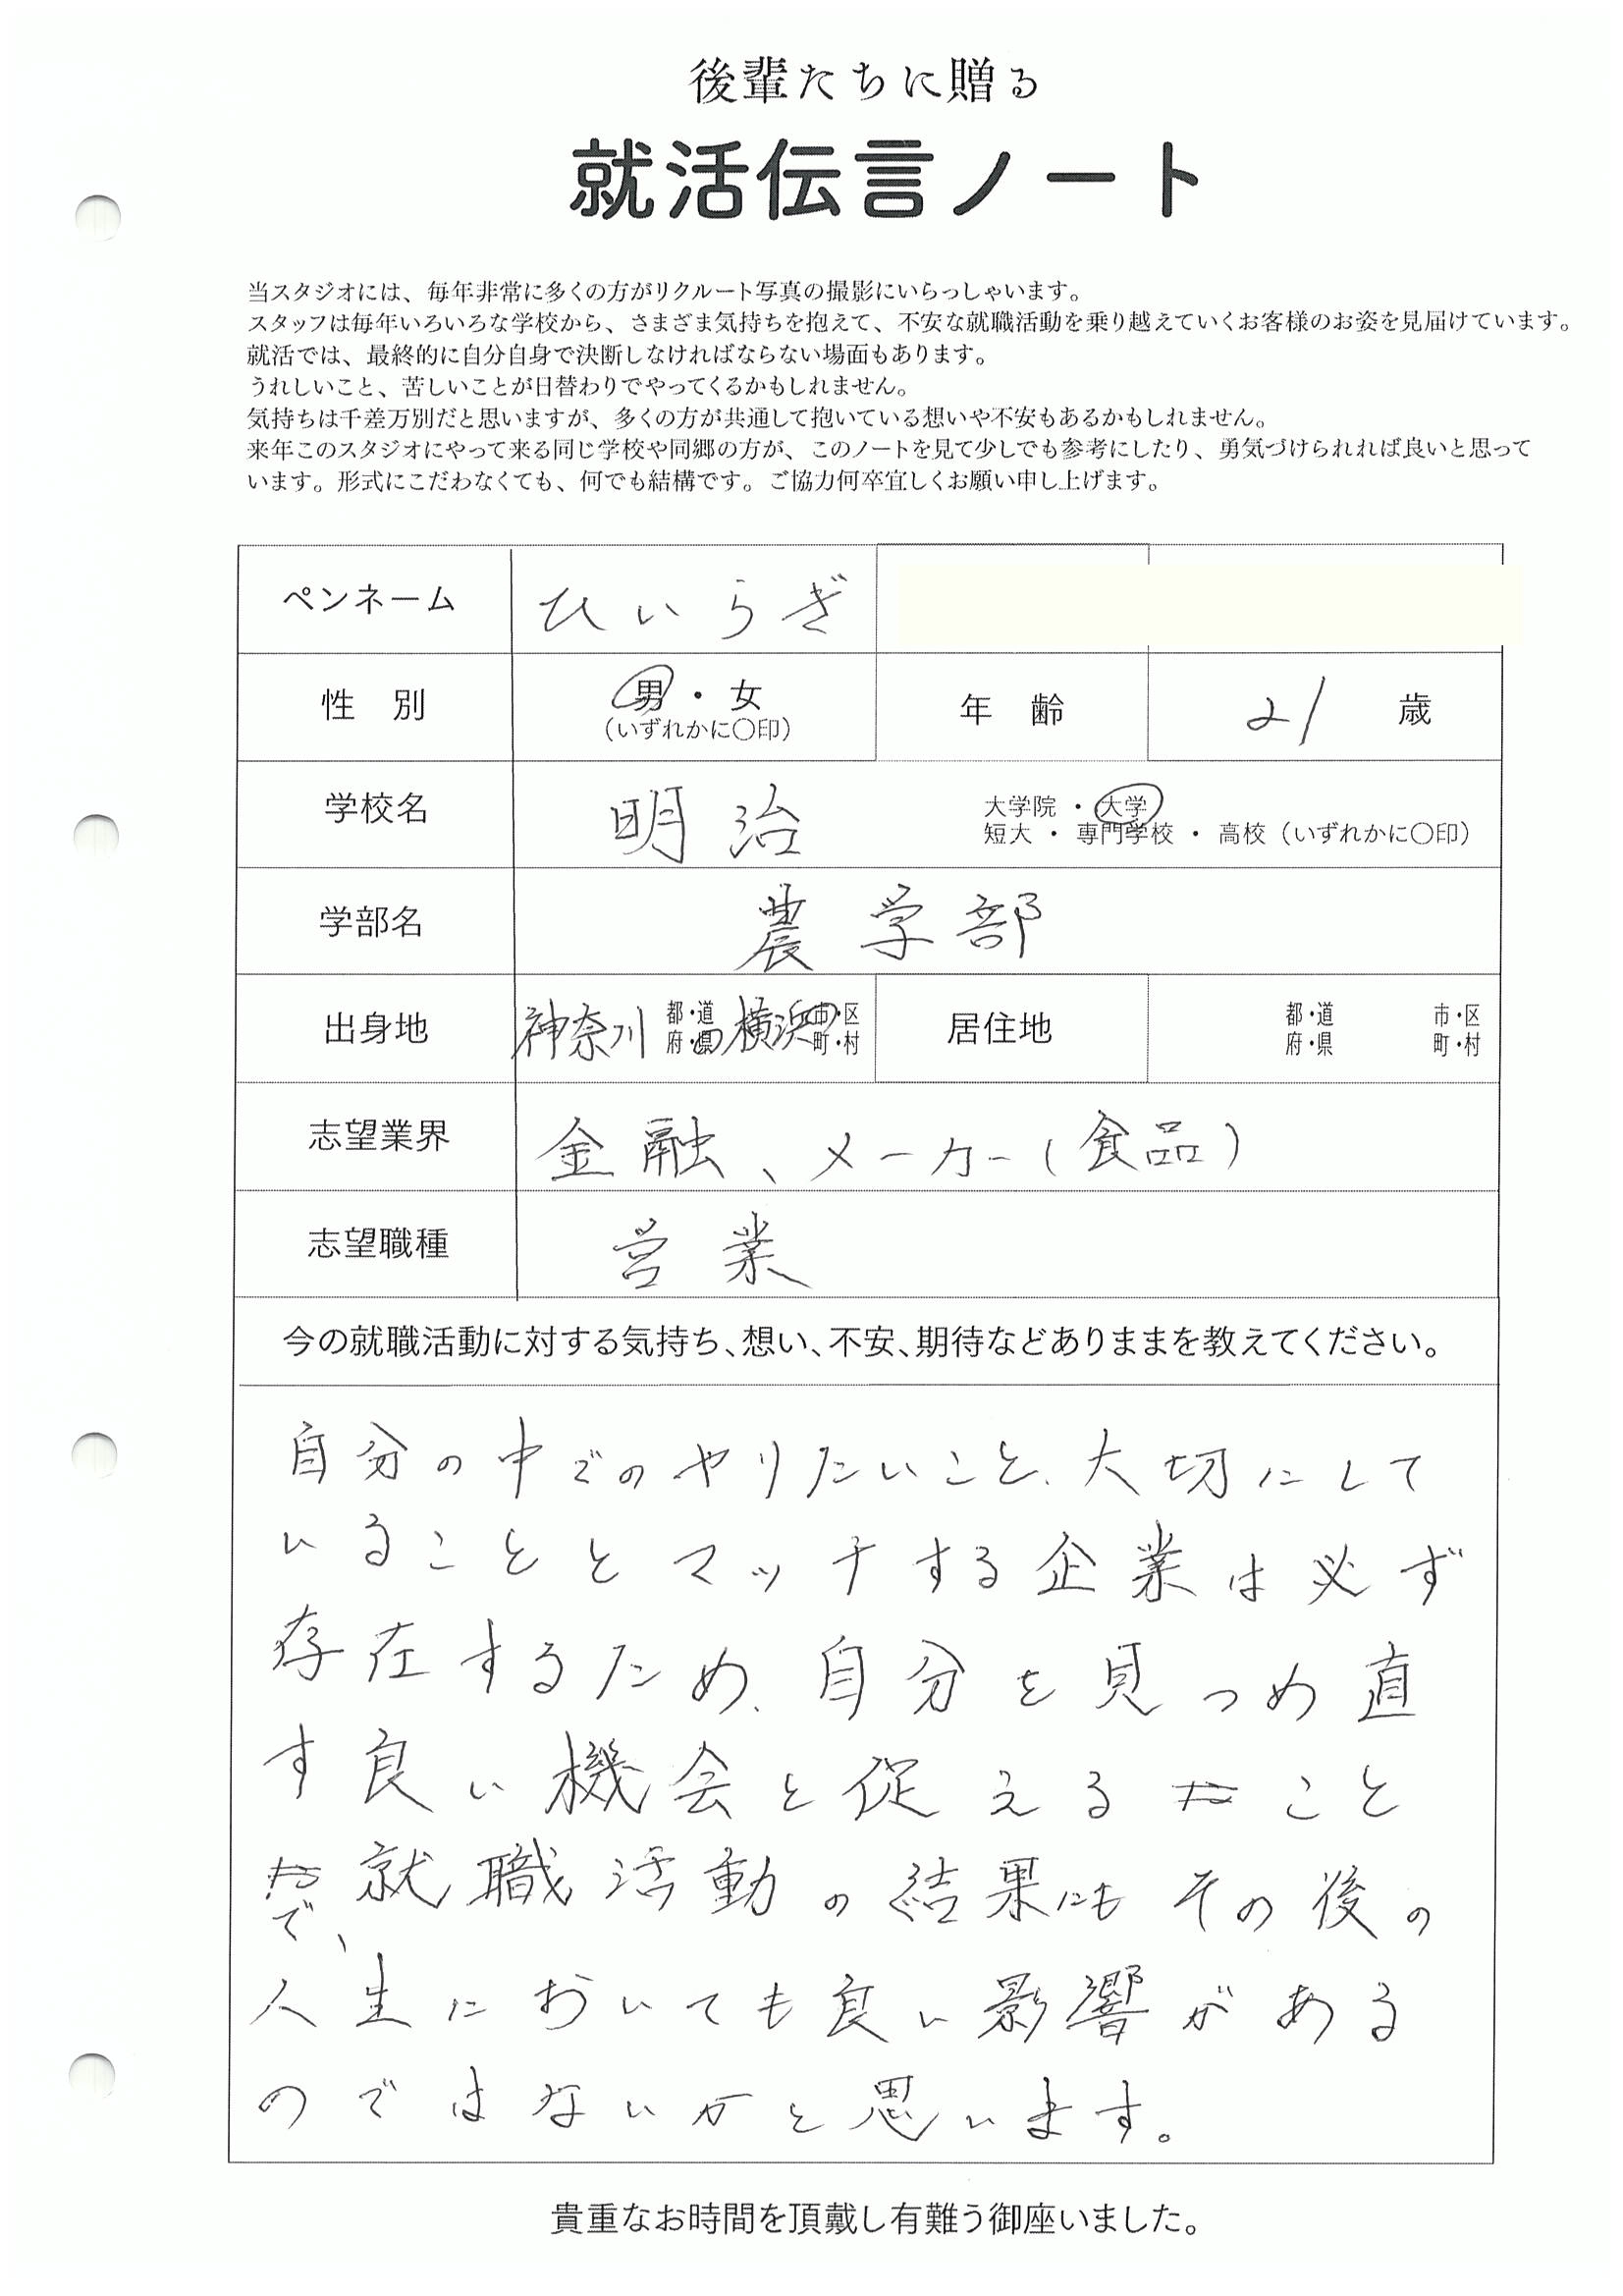 後輩たちに贈る
就活伝言ノート
当スタジオには、毎年非常に多くの方がリクルート写真の撮影にいらっしゃいます。
スタッフは毎年いろいろな学校から、さまざま気持ちを抱えて、不安な就職活動を乗り越えていくお客様のお姿を見届けています。
就活では、最終的に自分自身で決断しなければならない場面もあります。
うれしいこと、苦しいことが日替わりでやってくるかもしれません。
気持ちは千差万別だと思いますが、多くの方が共通して抱いている想いや不安もあるかもしれません。
来年このスタジオにやって来る同じ学校や同郷の方が、このノートを見て少しでも参考にしたり、勇気づけられれば良いと思って
います。形式にこだわなくても、何でも結構です。ご協力何卒宜しくお願い申し上げます。
ペンネーム ひいらぎ
性 別 男・女 年 齢 21 歳
(いずれかに〇印)
学校名 明治 大学院 ・ 大学
短大 ・ 専門学校 ・ 高校 (いずれかに〇印)
学部名 農学部
出身地 神奈川 都・道 府・県 横浜 市・区 町・村 居住地 都・道 府・県 市・区 町・村
志望業界 金融、メーカー(食品)
志望職種 営業
今の就職活動に対する気持ち、想い、不安、期待などありままを教えてください。
自分の中でのやりたいこと、大切にして
いることとマッチする企業は必ず
存在するため、自分を見つめ直
す良い機会と促えること
で、就職活動の結果にもその後の
人生においても良い影響がある
のではないかと思います。
貴重なお時間を頂戴し有難う御座いました。